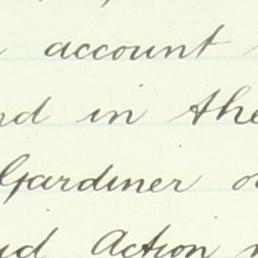 account
in the
Gardiner
Action